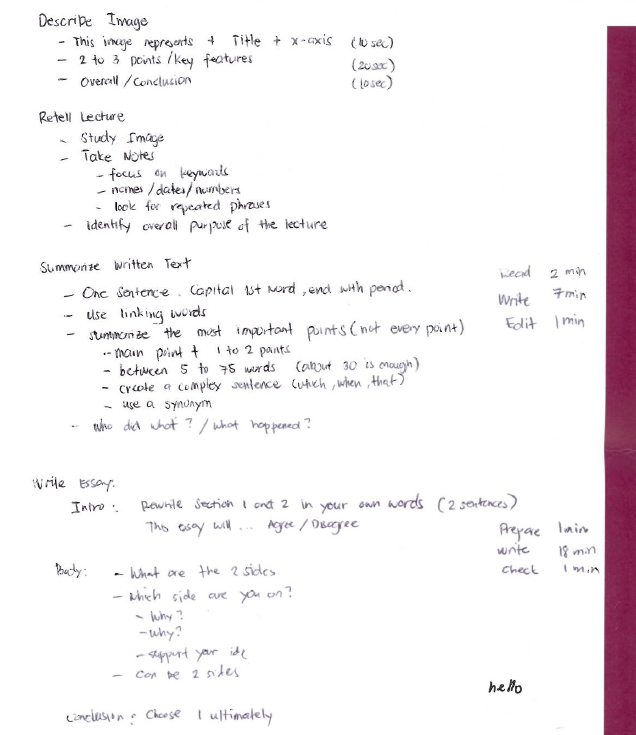 Describe Image
- This image represents + Title + x-axis (10 sec)
- 2 to 3 points/key features (20 sec)
- Overall/Conclusion (10 sec)
Retell Lecture
- Study Image
- Take Notes
- focus on keywords
- names/dates/numbers
- look for repeated phrases
- identify overall purpose of the lecture
Summarize Written Text
Read 2 min
- One Sentence. Capital 1st Word, end with period.
Write 7 min
- Use linking words
- summarize the most important points (not every point)
Edit 1 min
- main point + 1 to 2 points
- between 5 to 75 words (about 30 is enough)
- create a complex sentence (which, when, that)
- use a synonym
- Who did what? / What happened?
Write Essay:
Intro: Rewrite Section 1 and 2 in your own words (2 sentences)
This essay will ... Agree/Disagree
Prepare 1 min
write 18 min
check 1 min
Body: - What are the 2 sides
- Which side are you on?
- Why?
- why?
- support your ide
- Can be 2 sides
hello
Conclusion: Choose 1 ultimately